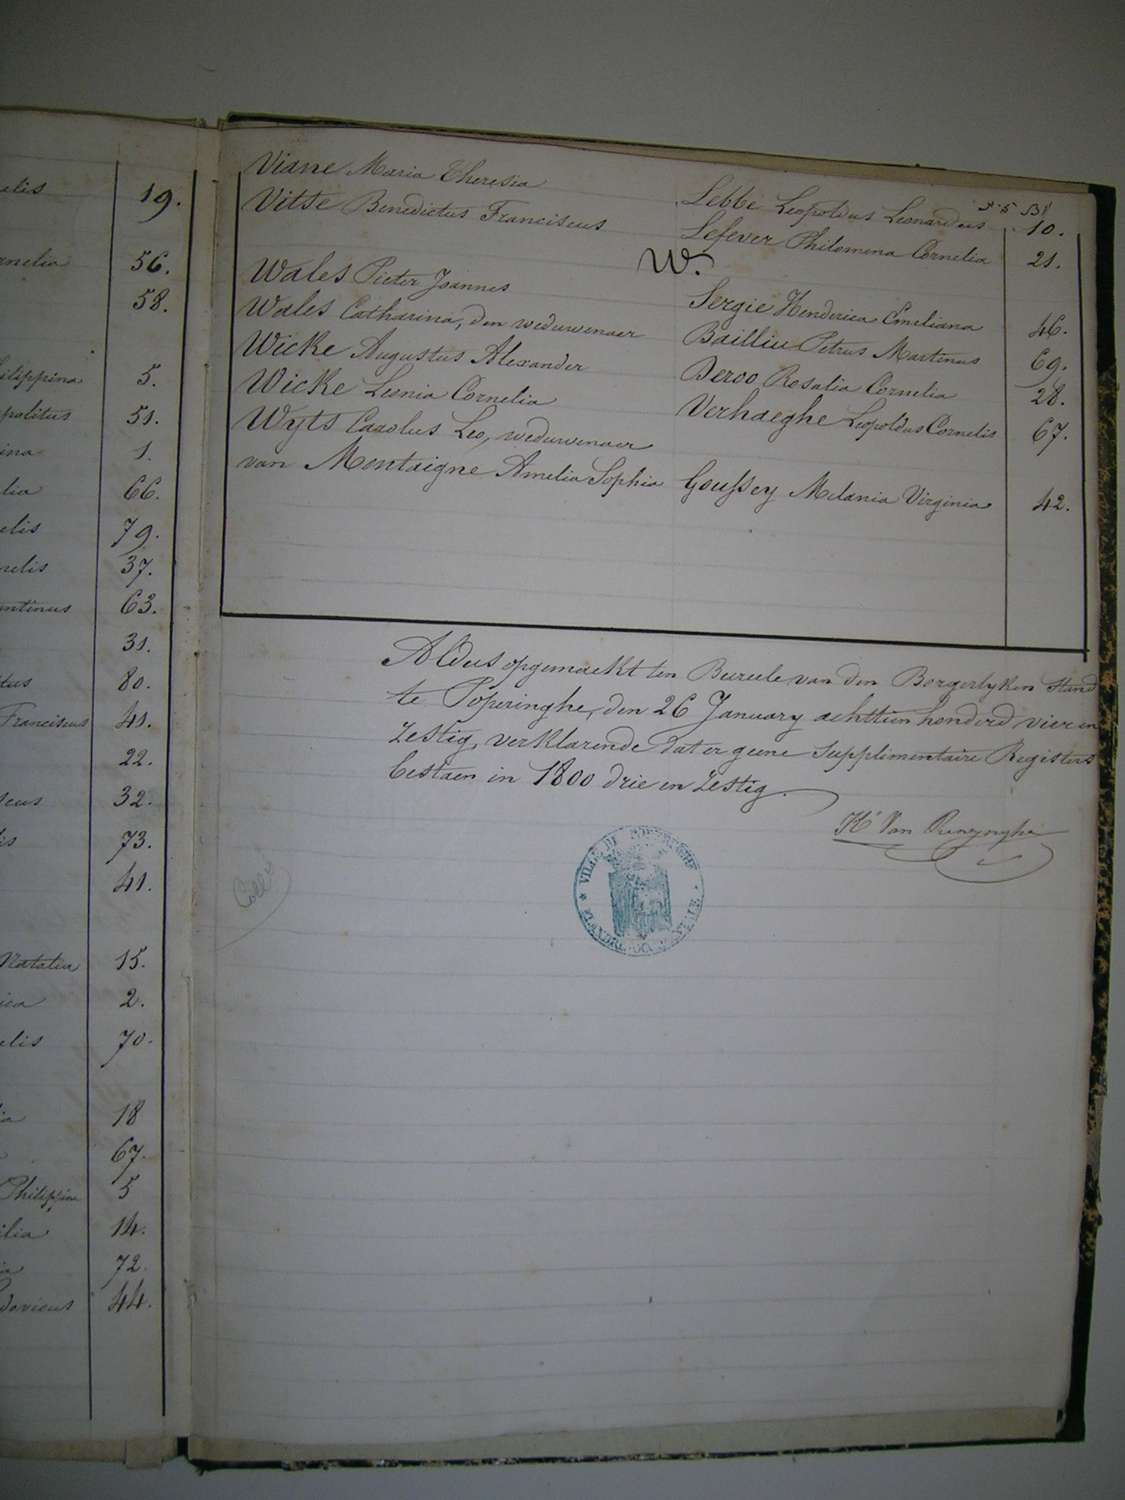 elis 19.
rnelia 56.
58.
hilippina 5.
politus 51.
ina 1.
lia 66.
elis 79.
nelis 37.
antinus 63.
31.
itus 80.
Franciscus 41.
22.
scus 32.
is 73.
41.
Natalia 15.
ica 2.
elis 70.
ia 18
67.
Philippine 5
ilia 14.
ia 72.
udovicus 44.
Viane Maria Theresia Lebbe Leopoldus Leonardus 10.
Vitse Benedictus Franciscus Lefever Philomena Cornelia 21.
W.
Wales Pieter Joannes Sergie Henderica Emeliana 46.
Wales Catharina, den weduwenaer Bailliu Petrus Martinus 69.
Wicke Augustus Alexander Deroo Rosalia Cornelia 28.
Wicke Leonia Cornelia Verhaeghe Leopoldus Cornelis 67.
Wyts Carolus Leo, weduwenaer
van Montaigne Amelia Sophia Goussey Melania Virginia 42.
Aldus opgemaekt ten Bureele van den Borgerlyken Stand
te Poperinghe, den 26 January achttien honderd vier en
zestig, verklarende dat er geene supplementaire Registers
bestaen in 1800 drie en zestig.
Van
VILLE DE POPERINGHE
FLANDRE OCCIDENTALE